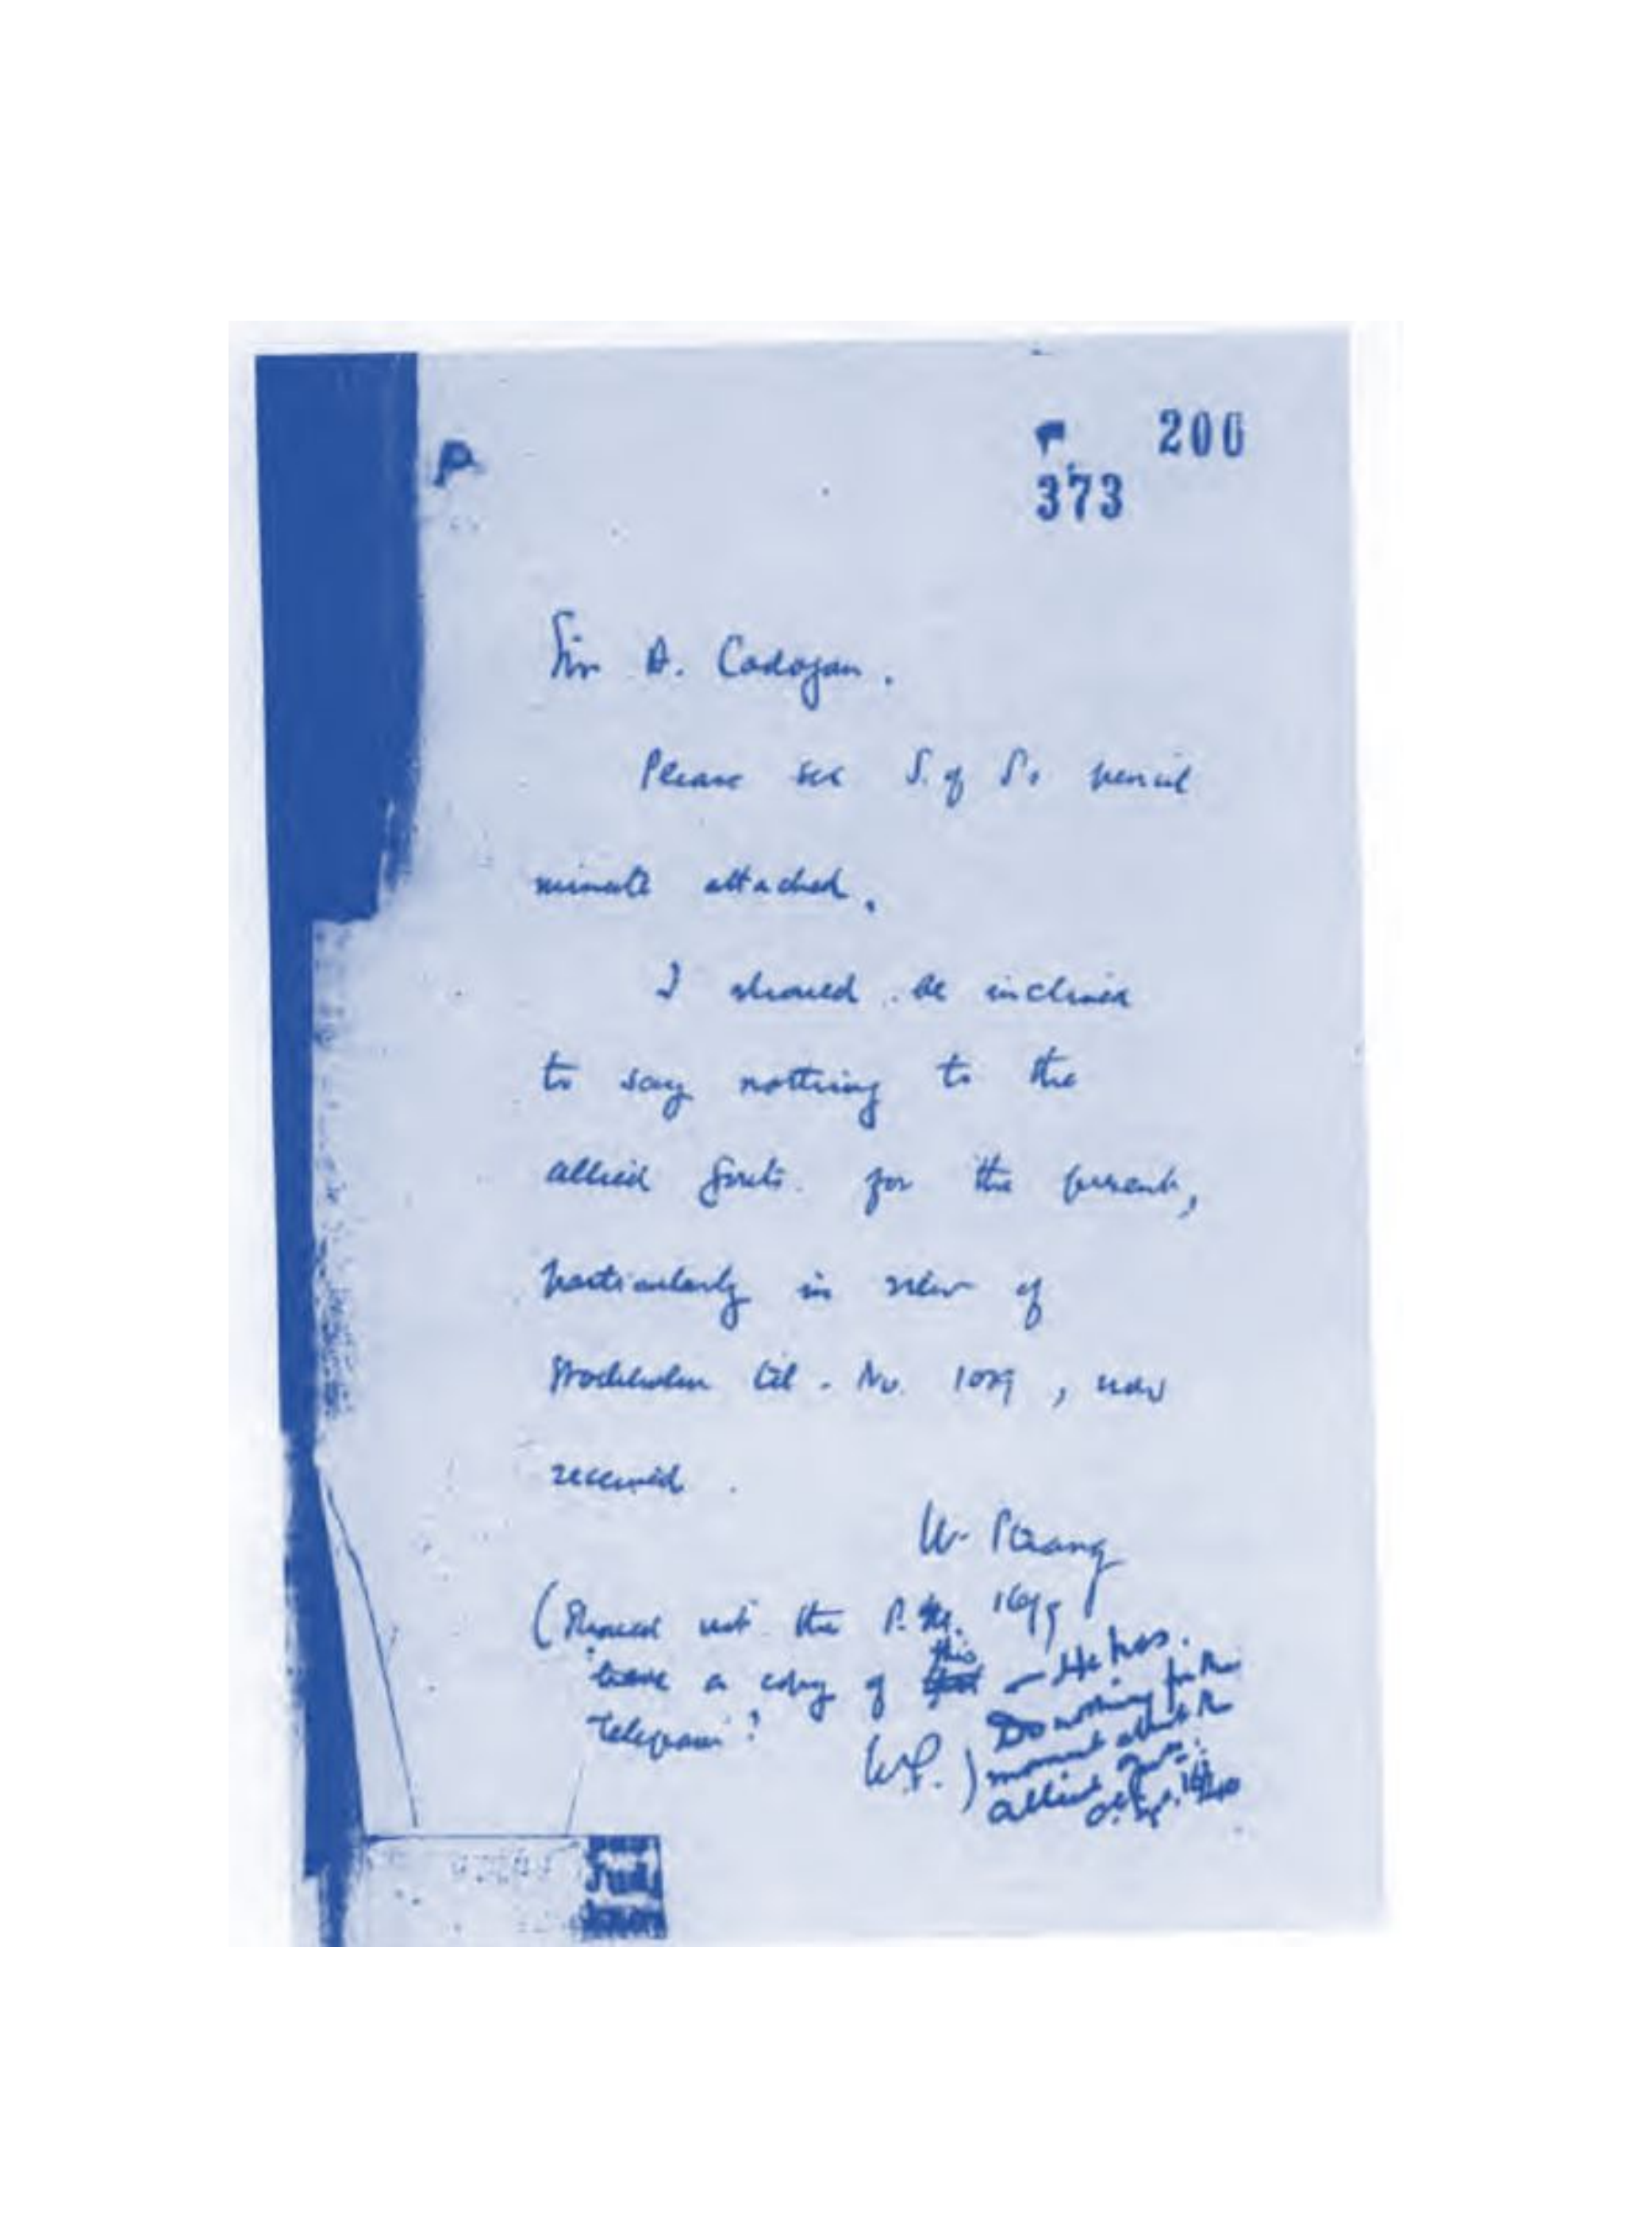 P
F 200
373
Sir A. Cadogan.
Please see S. of S's pencil
minute attached.
I should be inclined
to say nothing to the
allied Govts. for the present,
particularly in view of
Stockholm tel. No. 1029, now
received.
W. Strang
16/9
(Should not the P.M.
have a copy of this
telegram?
W.S.)
– He has.
Do nothing for the
moment about the
allied Govts.